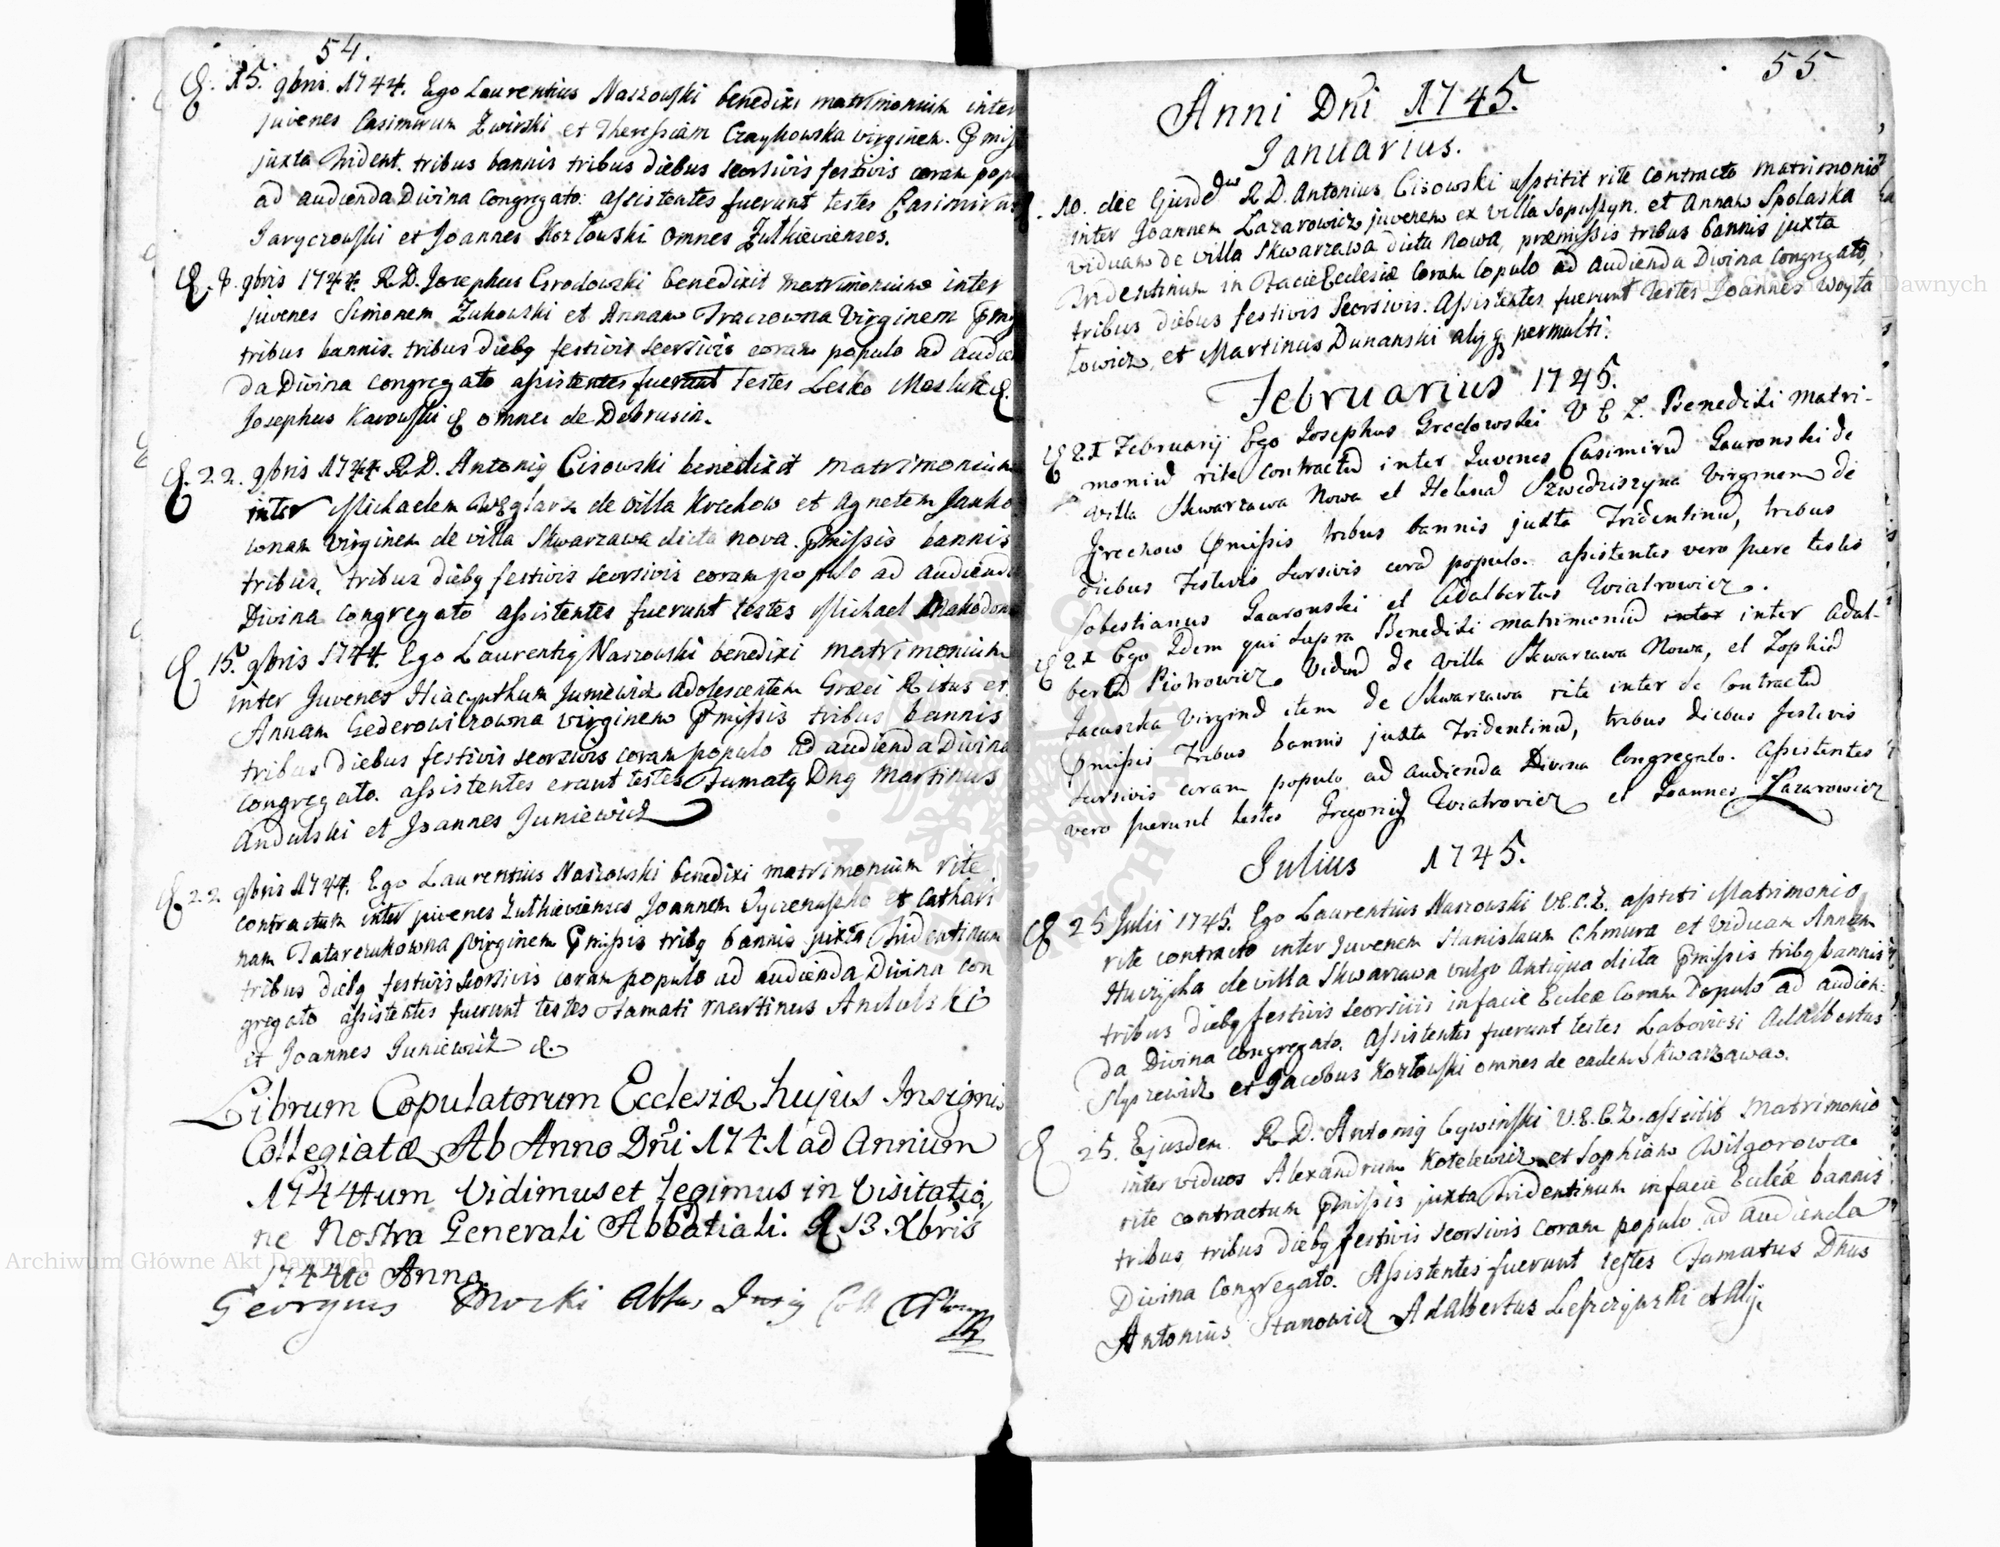 54.
15. 9bris. 1744. Ego Laurentius Naszowski benedixi matrimonium inter
juvenes Casimirum Zwirski et Theressiam Czaykowska virginem.
juxta Trident. tribus bannis tribus diebus seorsivis festivis coram pop
ad audienda Divina congregato: assistentes fuerunt testes Casimirus
et Joannes Kozłowski omnes Zulkievienses.
9bris 1744. R.D. Josephus Grodowski benedixit matrimonium inter
juvenes Simonem Zukowski et Annam Traczowna Virginem
tribus bannis. tribus diebq festivis seorsivis coram populo ad audien
da Divina congregato assistentes fuerunt testes Lesko
Josephus Karowski & omnes de Dobrusin.
22. 9bris 1744 R.D. Antoniq Cisowski benedixit matrimonium
inter Michaelem Węglarz de villa Krechow et Agnetem Janko
wnam virginem de villa Skwarzawa dicta nova. pmissis bannis
tribus, tribus diebq festivis seorsivis coram populo ad audiend
Divina congregato assistentes fuerunt testes Michael
15. 9bris 1744. Ego Laurentiq Naszowski benedixi matrimonium
inter Juvenes Hiacynthum Juniewicz adolescentem Græci Ritus et
Annam Gederowiczowna virginem pmissis tribus bannis
tribus diebus festivis seorsivis coram populo ad audienda Divina
congregato. assistentes erant testes Famatq Dnq Martinus
Andulski et Joannes Juniewicz
22 9bris 1744. Ego Laurentius Naszowski benedixi matrimonium rite
contractum inter juvenes Zulkievienses Joannem et Cathari
nam Tatarczukowna virginem pmissis tribq bannis juxta Tridentinum
tribus diebq festivis seorsivis coram populo ad audienda Divina con
gregato assistentes fuerunt testes Famati Martinus Andulski
et Joannes Juniewicz &.
Librum Copulatorum Ecclesiæ hujus Insignis
Collegiatæ Ab Anno Dni 1741 ad Annum
1744tum Vidimus et legimus in Visitatio,
ne Nostra Generali Abbatiali. D 13 Xbris
1744to Anno.
Georgius Abbas Insig Coll
55
Anni Dni 1745.
Januarius.
10. die Ejusdem R.D. Antonius Cisowski asstitit rite contracto matrimonio
inter Joannem Lazarowicz juvenem ex villa Sopuszyn. et Annam Spolaska
viduam de villa Skwarzawa dicta Nowa, præmissis tribus bannis juxta
Tridentinum in Facie Ecclesiæ coram Copulo ad audienda Divina congregato,
tribus diebus festivis seorsivis. Assistentes fuerunt Testes Joannes Woyta
lowicz, et Martinus Dunanski alijq permulti.
Februarius 1745.
21 Februarij Ego Josephus Grodowski V E Z. Benedixi matri-
moniu rite contractu inter Juvenes Casimiru Gauronski de
villa Skwarzawa Nowa et Helena Szwedziszyna Virginem de
Krechow pmissis tribus bannis juxta Tridentinu, tribus
diebus Festivis sersivis cora populo. assistentes vero fuere testes
Sobestianus Gauronski et Adalbertus Kwiatrowicz.
21 Ego Idem qui supra Benedixi matrimoniu inter inter Adal-
bertu Piotrowicz Viduu de Villa Skwarzawa Nowa, et Zophia
Jacuszka Virgine item de Skwarzawa rite inter se Contractu
pmissis Tribus bannis juxta Tridentinu, tribus diebus festivis
sersivis coram populo ad audienda Divina Congregato. Assistentes
vero fuerunt testes Gregoriq Kwiatrovicz et Joannes Lazarowicz
Julius 1745.
25 Julii 1745. Ego Laurentius Naszowski V.E.C.Z. asstiti Matrimonio
rite contracto inter Juvenem Stanislaum Chmura et Viduam Annam
de villa Skwarzawa vulgo Antiqua dicta pmissis tribq bannis
tribus diebq festivis seorsivis in facie Ecclæ Coram Populo ad audien:
da Divina congregato. Assistentes fuerunt testes Laboriosi Adalbertus
et Jacobus Kozłowski omnes de eadem Skwarzawa.
25. Ejusdem R.D. Antoniq Cywinski V.E.C.Z. asstitit Matrimonio
inter viduos Alexandrum Kotelewicz et Sophiam Wilgorowa
rite contractum pmissis juxta Tridentinum in facie Ecclæ bannis
tribus, tribus diebq festivis seorsivis coram populo ad audienda
Divina Congregato. Assistentes fuerunt testes Famatus Dnus
Antonius Stanowicz Adalbertus Leszczynski et Alij.
Archiwum Główne Akt Dawnych